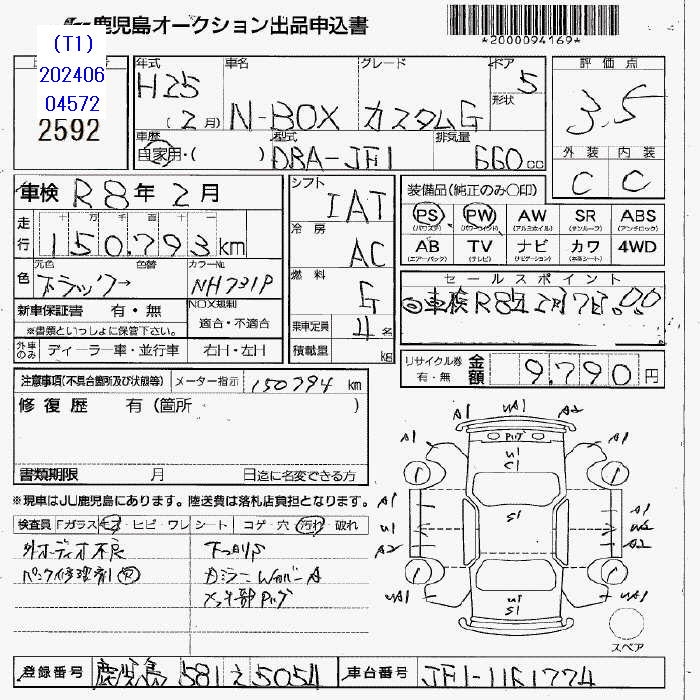 鹿児島オークション出品申込書
*2000094169*
(T1)
202406
04572
2592
年式 車名 グレード ドア 評価点
H25 (2月) N-BOX カスタムG 5 3.5
形状
車歴 型式 排気量 外装 内装
自家用・( ) DBA-JF1 660cc C C
車検 R8年2月
シフト IAT
走行 十 万 千 百 十 一
150,793km
冷房 AC
元色 色替 カラーNo.
色 ブラック NH731P
燃料 G
新車保証書 有・無
※書類といっしょに保管下さい。
NOX規制 適合・不適合
乗車定員 4名
外車のみ ディーラー車・並行車 右H・左H
積載量 kg
装備品(純正のみ○印)
PS PW AW SR ABS
(パワステ) (パワーウインド) (アルミホイル) (サンルーフ) (アンチロック)
AB TV ナビ カワ 4WD
(エアーバック) (テレビ) (ナビゲーション) (本革シート)
セールスポイント
車検R8年2月7日
リサイクル券 有・無 金額 9,790円
注意事項(不具合箇所及び状態等) メーター指示 150794 km
修復歴 有(箇所 )
書類期限 月 日迄に名変できる方
※現車はJU鹿児島にあります。陸送費は落札店負担となります。
検査員 Fガラス キズ・ヒビ・ワレ シート コゲ・穴・汚れ・破れ
外オーディオ不良 下回りS
パンク修理剤
A1 UA1 A2
A1 A1
U1
C1
S1
A1 A1
U1
A2 A2
UA1 A1
U1
S1
スペア
登録番号 鹿児島 581 え 5054 車台番号 JF1-1161774